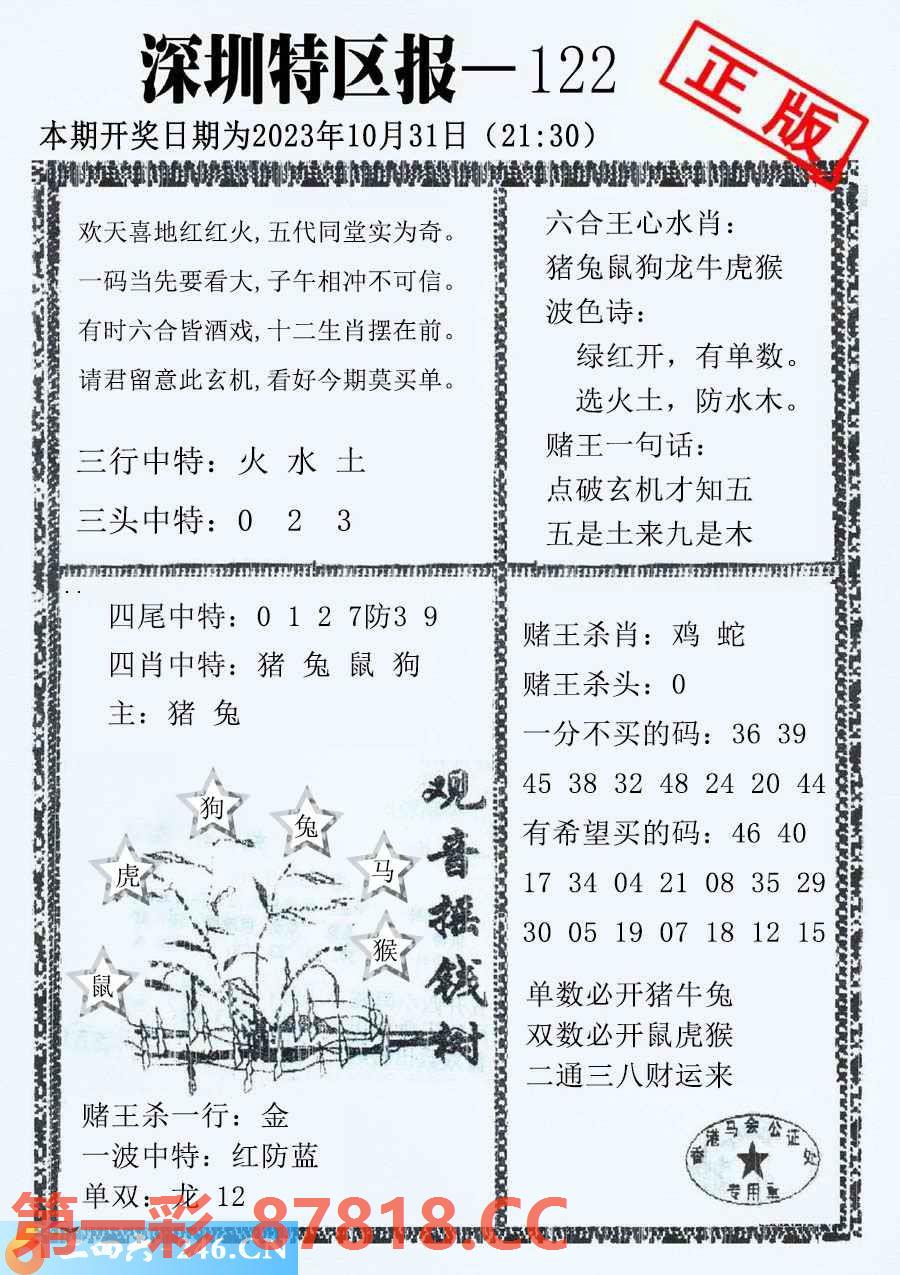 深圳特区报—122
正版
本期开奖日期为2023年10月31日（21:30）
欢天喜地红红火,五代同堂实为奇。
一码当先要看大,子午相冲不可信。
有时六合皆酒戏,十二生肖摆在前。
请君留意此玄机,看好今期莫买单。
三行中特：火 水 土
三头中特：0 2 3
六合王心水肖：
猪兔鼠狗龙牛虎猴
波色诗：
绿红开，有单数。
选火土，防水木。
赌王一句话：
点破玄机才知五
五是土来九是木
四尾中特：0 1 2 7防3 9
四肖中特：猪 兔 鼠 狗
主：猪 兔
狗
兔
虎
马
猴
鼠
观音摇钱树
赌王杀一行：金
一波中特：红防蓝
单双：龙 12
赌王杀肖：鸡 蛇
赌王杀头：0
一分不买的码：36 39
45 38 32 48 24 20 44
有希望买的码：46 40
17 34 04 21 08 35 29
30 05 19 07 18 12 15
单数必开猪牛兔
双数必开鼠虎猴
二通三八财运来
香港马会公证处
专用章
第一彩 87818.CC
246.CN